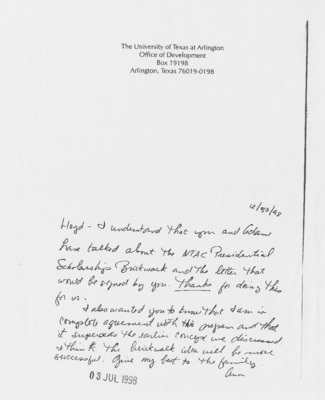 The University of Texas at Arlington
Office of Development
Box 19198
Arlington, Texas 76019-0198
6/30/98
Lloyd - I understand that you and Adam
have talked about the NTAC Presidential
Scholarships Brickwork and the letter that
would be signed by you. Thanks for doing this
for us.
I also wanted you to know that I am in
complete agreement with this program and that
it supersedes the earlier concept we discussed.
I think the brickwork idea will be more
successful. Give my best to the family.
03 JUL 1998